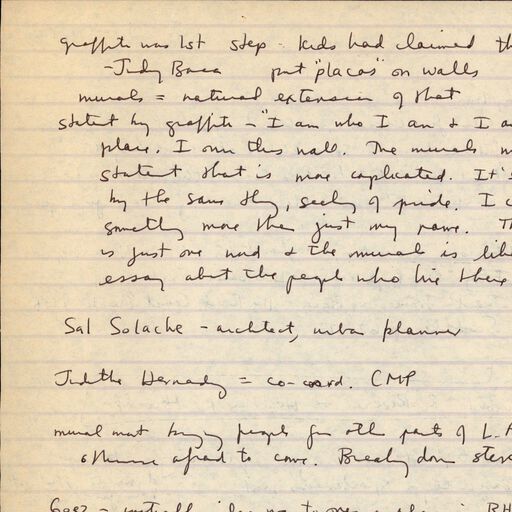 graffiti was 1st step - kids had claimed th
- Judy Baca put "placas" on walls
murals = natural extension of that
statemt by graffiti - "I am who I am & I a
place. I own this wall. The murals m
statemt that is more complicated. It's
by the same thg, seekg of pride. I c
somethg more than just my name. Th
is just one word & the mural is like
essay about the people who live there
Sal Solache - architect, urban planner
Judithe Hernandez = co-coord. CMP
mural mt brings people from other parts of L.A
otherwise afraid to come. Breakg down ster